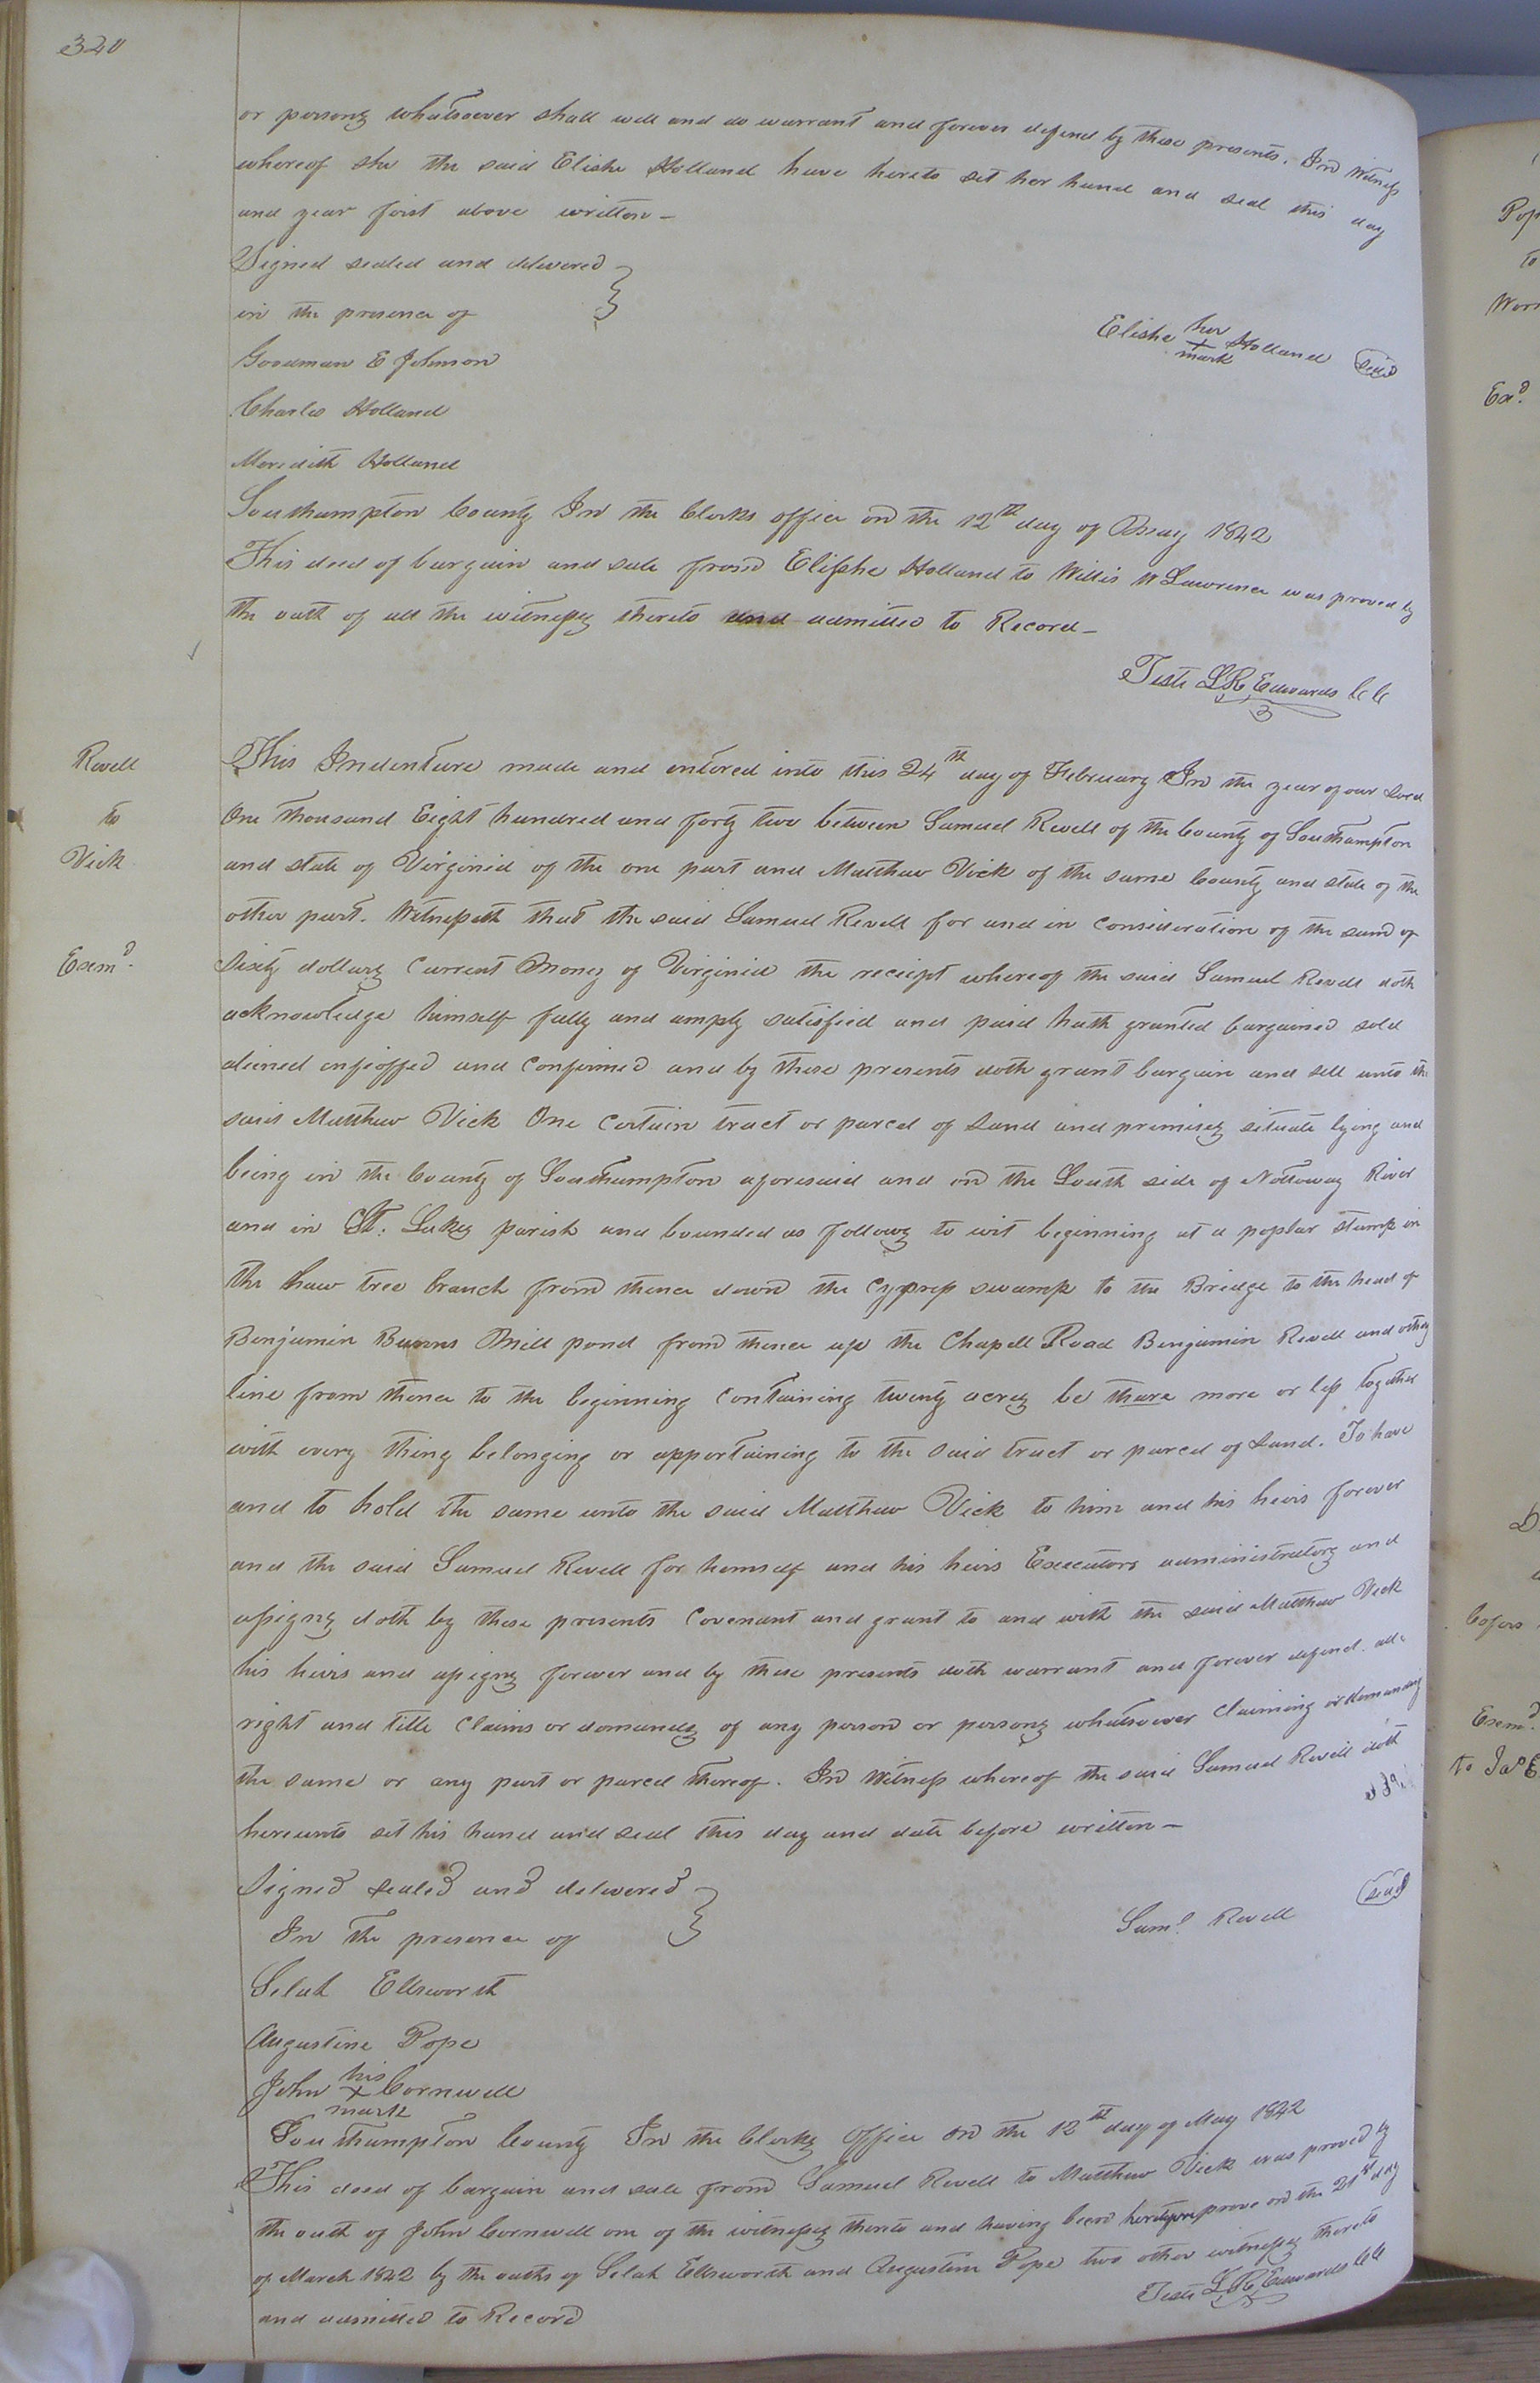 320
or persons whatsoever shall well and do warrant and forever defend by these presents. In Witness
whereof she the said Elishe Holland have hereto set her hand and seal this day
and year first above written -
Signed sealed and delivered
in the presence of
Elishe her + mark Holland seal
Goodman E Johnson
Charles Holland
Meredith Holland
Southampton County In the Clerks office on the 12th day of May 1842
This deed of bargain and sale from Elishe Holland to Willis W Lawrence was proved by
the oath of all the witnesses thereto and admitted to Record -
Teste L R Edwards C C
Revell
to
Vick
Exemd.
This Indenture made and entered into this 24th day of February In the year of our Lord
One thousand Eight hundred and forty two between Samuel Revell of the County of Southampton
and state of Virginia of the one part and Matthew Vick of the same County and state of the
other part. Witnesseth that the said Samuel Revell for and in consideration of the sum of
Sixty dollars Current Money of Virginia the receipt whereof the said Samuel Revell doth
acknowledge himself fully and amply satisfied and paid hath granted bargained sold
aliened enfeoffed and Confirmed and by these presents doth grant bargain and sell unto the
said Matthew Vick One Certain tract or parcel of Land and premises situate lying and
being in the County of Southampton aforesaid and on the South side of Nottoway River
and in St. Lukes parish and bounded as follows to wit beginning at a poplar stump in
the haw tree branch from thence down the Cypress swamp to the Bridge to the head of
Benjamin Barns Mill pond from thence up the Chapell Road Benjamin Revell and others
line from thence to the beginning Containing twenty acres be thare more or less together
with every thing belonging or appertaining to the said tract or parcel of Land. To have
and to hold the same unto the said Matthew Vick to him and his heirs forever
and the said Samuel Revell for himself and his heirs Executors administrators and
assigns doth by these presents Covenant and grant to and with the said Matthew Vick
his heirs and assigns forever and by these presents doth warrant and forever defend all
right and title Claims or demands of any person or persons whatsoever Claiming or demanding
the same or any part or parcel thereof. In Witness whereof the said Samuel Revell doth
hereunto set his hand and seal this day and date before written -
Signed sealed and delivered
In the presence of
Saml. Revell seal
Selah Ellsworth
Augustine Pope
John his + mark Cornwell
Southampton County In the Clerks Office on the 12th day of May 1842
This deed of bargain and sale from Samuel Revell to Matthew Vick was proved by
the oath of John Cornwell one of the witnesses thereto and having been heretofore prove on the 21st day
of March 1842 by the oaths of Selah Ellsworth and Augustine Pope two other witnesses thereto
and admitted to Record
Teste L R Edwards C C
Pop
to
Exd.
Exemd.